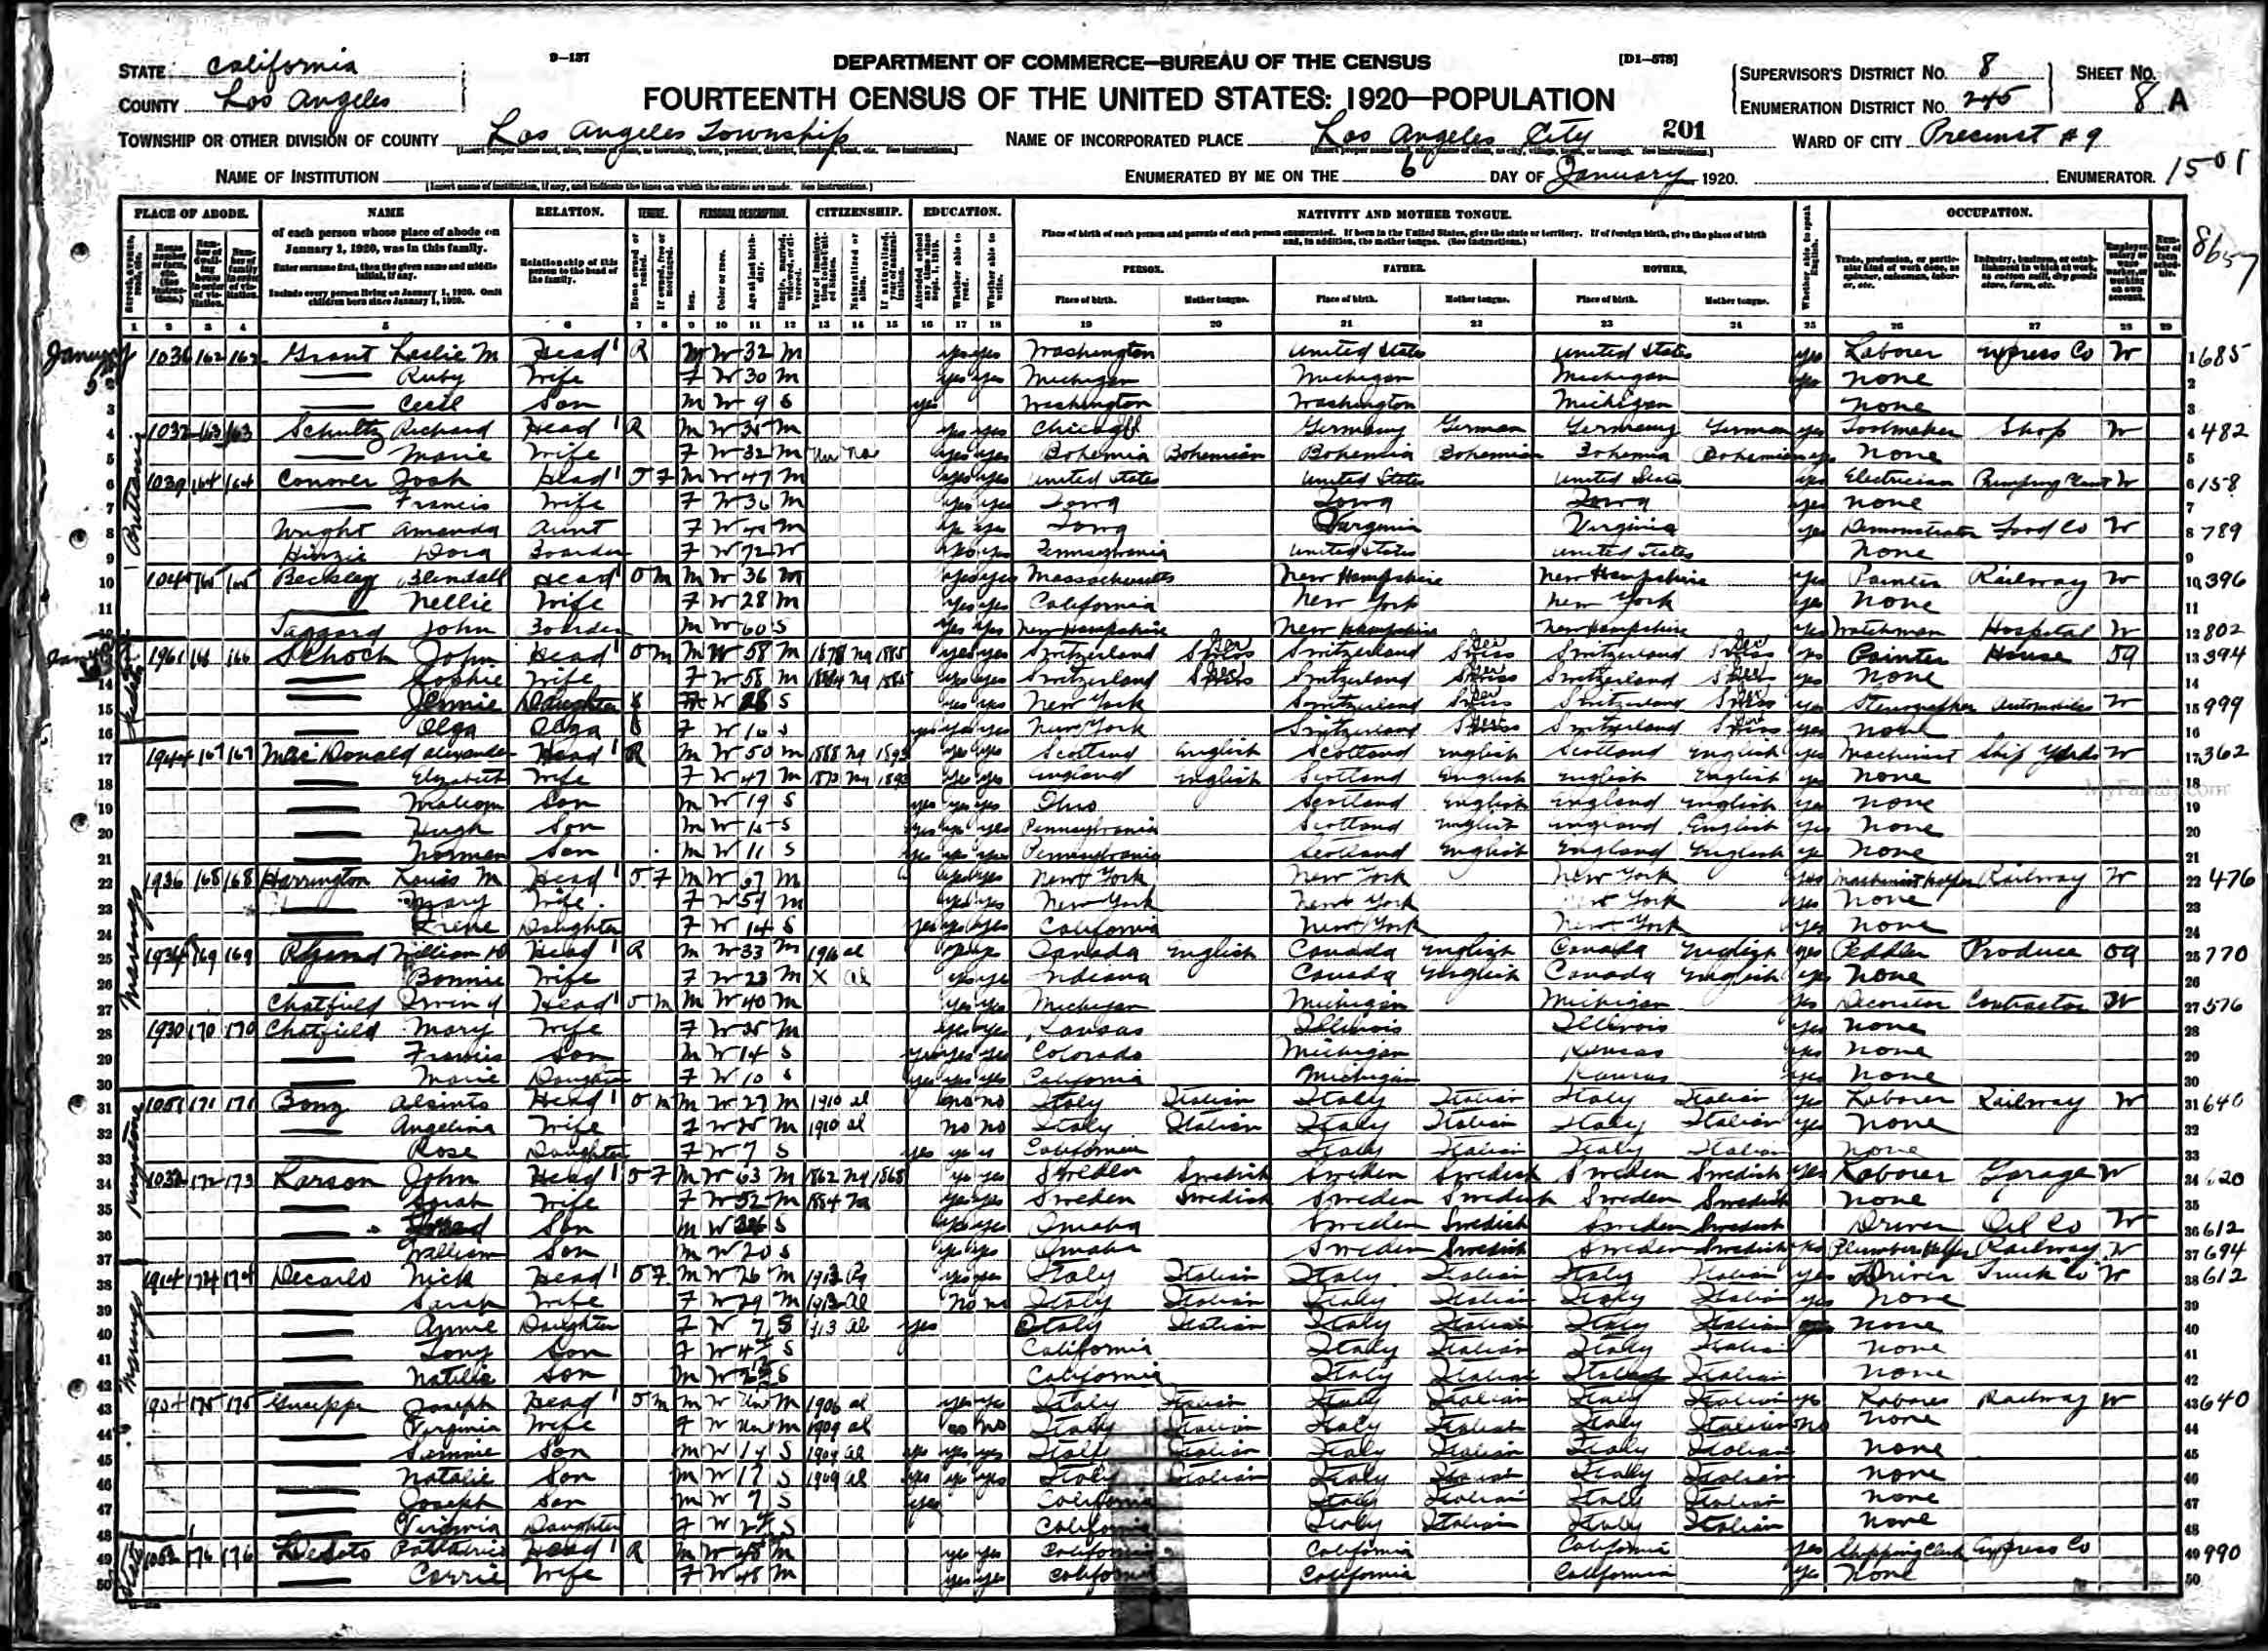 STATE California
9—137
DEPARTMENT OF COMMERCE—BUREAU OF THE CENSUS
[D1—578]
COUNTY Los Angeles
FOURTEENTH CENSUS OF THE UNITED STATES: 1920—POPULATION
SUPERVISOR'S DISTRICT NO. 8
ENUMERATION DISTRICT NO. 245
SHEET NO. 8 A
TOWNSHIP OR OTHER DIVISION OF COUNTY Los Angeles Township
NAME OF INCORPORATED PLACE Los Angeles City 201
WARD OF CITY Precinct #9
NAME OF INSTITUTION
ENUMERATED BY ME ON THE 6 DAY OF January 1920. ENUMERATOR. 1501
8657
PLACE OF ABODE. NAME RELATION. TENURE. PERSONAL DESCRIPTION. CITIZENSHIP. EDUCATION. NATIVITY AND MOTHER TONGUE. OCCUPATION.
of each person whose place of abode on January 1, 1920, was in this family.
Enter surname first, then the given name and middle initial, if any.
Include every person living on January 1, 1920. Omit children born since January 1, 1920.
Relationship of this person to the head of the family.
Place of birth of each person and parents of each person enumerated. If born in the United States, give the state or territory. If of foreign birth, give the place of birth and, in addition, the mother tongue. (See Instructions.)
PERSON. FATHER. MOTHER.
Place of birth. Mother tongue. Place of birth. Mother tongue. Place of birth. Mother tongue.
1 2 3 4 5 6 7 8 9 10 11 12 13 14 15 16 17 18 19 20 21 22 23 24 25 26 27 28 29
1 162 162 Grant Leslie M Head R M W 32 M yes yes Washington United States United States yes Laborer Express Co W 1 685
2 Ruby Wife F W 30 M yes yes Michigan Michigan Michigan yes none 2
3 Cecil Son M W 9 S yes Washington Washington Michigan none 3
4 1032 163 163 Schultz Richard Head R M W M yes yes Chicago Germany German Germany German yes Toolmaker Shop W 4 482
5 Marie Wife F W 32 M Un Na yes yes Bohemia Bohemian Bohemia Bohemian Bohemia Bohemian yes none 5
6 164 164 Conover Josh Head O F M W 47 M yes yes United States United States United States yes Electrician Pumping Plant W 6 158
7 Francis Wife F W 36 M yes yes Iowa Iowa Iowa yes none 7
8 Wright Amanda Aunt F W M yes Iowa Virginia Virginia yes Demonstrator Food Co W 8 789
9 Dora Boarder F W 72 W yes yes Pennsylvania United States United States none 9
10 165 165 Head O M M W 36 M yes yes Massachusetts New Hampshire New Hampshire yes Painter Railway W 10 396
11 Nellie Wife F W 28 M yes yes California New York New York yes none 11
12 Taggard John Boarder M W 60 S yes yes New Hampshire New Hampshire New Hampshire yes Watchman Hospital W 12 802
13 1961 166 166 Schoch John Head O M M W 58 M 1878 Na 1885 yes yes Switzerland Swiss Switzerland Swiss Switzerland Swiss yes Painter House 13 394
14 Sophie Wife F W 58 M Na yes yes Switzerland Swiss Switzerland Swiss Switzerland Swiss yes none 14
15 Jennie Daughter W 28 S yes yes New York Switzerland Swiss Switzerland Swiss yes Stenographer Automobiles W 15 999
16 Olga Olga F W 16 S yes yes yes New York Switzerland Swiss Switzerland Swiss yes none 16
17 1944 167 167 MacDonald Alexander Head R M W 50 M 1888 Na 1893 yes yes Scotland English Scotland English Scotland English yes Machinist Ship Yards W 17 362
18 Elizabeth Wife F W 47 M Na yes yes England English Scotland English English English yes none 18
19 William Son M W 19 S yes yes yes Ohio Scotland English England English yes none 19
20 Hugh Son M W 15 S yes yes yes Pennsylvania Scotland English England English yes none 20
21 Norman Son M W 11 S yes yes yes Pennsylvania Scotland English England English yes none 21
22 1936 168 168 Harrington Louis M Head O F M W 57 M yes yes New York New York New York yes Machinist Helper Railway W 22 476
23 Mary Wife F W 54 M yes yes New York New York New York yes none 23
24 Irene Daughter F W 14 S yes yes yes California New York New York yes none 24
25 1934 169 169 William Head R M W 33 M 1916 al yes yes Canada English Canada English Canada English yes Peddler Produce 25 770
26 Bonnie Wife F W 23 M X Al yes yes Indiana Canada English Canada English yes none 26
27 Chatfield Irving Head O M M W 40 M yes yes Michigan Michigan Michigan yes Decorator Contractor W 27 576
28 1930 170 170 Chatfield Mary Wife F W 35 M yes yes Kansas Illinois Illinois yes none 28
29 Francis Son M W 14 S yes yes yes Colorado Michigan Kansas yes none 29
30 Marie Daughter F W 10 S yes yes yes California Michigan Kansas yes none 30
31 1051 171 171 Head O M M W 27 M 1910 al no no Italy Italian Italy Italian Italy Italian yes Laborer Railway W 31 640
32 Angelina Wife F W 25 M 1910 al no no Italy Italian Italy Italian Italy Italian yes none 32
33 Rose Daughter F W 7 S yes California Italy Italian Italy Italian none 33
34 172 173 Larson John Head O F M W 63 M 1862 Na 1868 yes yes Sweden Swedish Sweden Swedish Sweden Swedish yes Laborer Garage W 34 620
35 Sarah Wife F W 52 M 1884 Na yes yes Sweden Swedish Sweden Swedish Sweden Swedish none 35
36 Son M W S yes yes Omaha Sweden Swedish Sweden Swedish Driver Oil Co W 36 612
37 William Son M W 20 S yes yes Omaha Sweden Swedish Sweden Swedish yes Plumbers Helper Railway W 37 694
38 1914 174 174 Decarlo Nick Head O F M W 26 M 1913 Pa yes yes Italy Italian Italy Italian Italy Italian yes Driver Truck Co W 38 612
39 Sarah Wife F W 29 M 1913 Al no no Italy Italian Italy Italian Italy Italian yes none 39
40 Annie Daughter F W 7 S 1913 Al yes Italy Italian Italy Italian Italy Italian none 40
41 Tony Son F W S California Italy Italian Italy Italian none 41
42 Natillie Son M W S California Italy Italian Italy Italian none 42
43 175 175 Guseppe Joseph Head O M M W Un M 1906 al yes yes Italy Italian Italy Italian Italy Italian yes Laborer Railway W 43 640
44 Virginia Wife F W Un M 1909 al no no Italy Italian Italy Italian Italy Italian no none 44
45 Sammie Son M W S 1909 al yes yes yes Italy Italian Italy Italian Italy Italian none 45
46 Natalie Son M W S 1909 al yes yes yes Italy Italian Italy Italian Italy Italian none 46
47 Joseph Son M W 7 S yes California Italy Italian Italy Italian none 47
48 Virginia Daughter F W S California Italy Italian Italy Italian none 48
49 176 176 DeSoto Head R M W 48 M yes yes California California California yes Shipping Clerk Express Co 49 990
50 Carrie Wife F W 48 M yes yes California California California yes none 50
Marengo
Kingstone
MyFamily.com